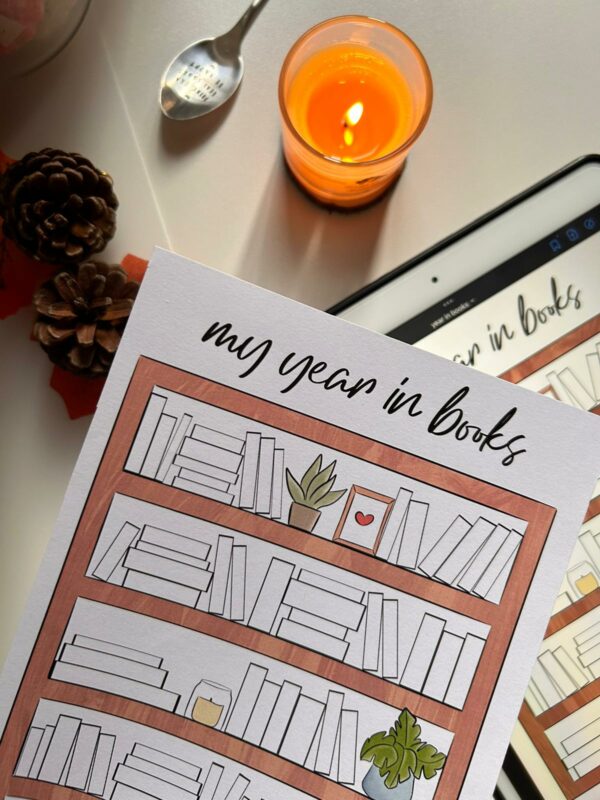 year in books
year in books
my year in books